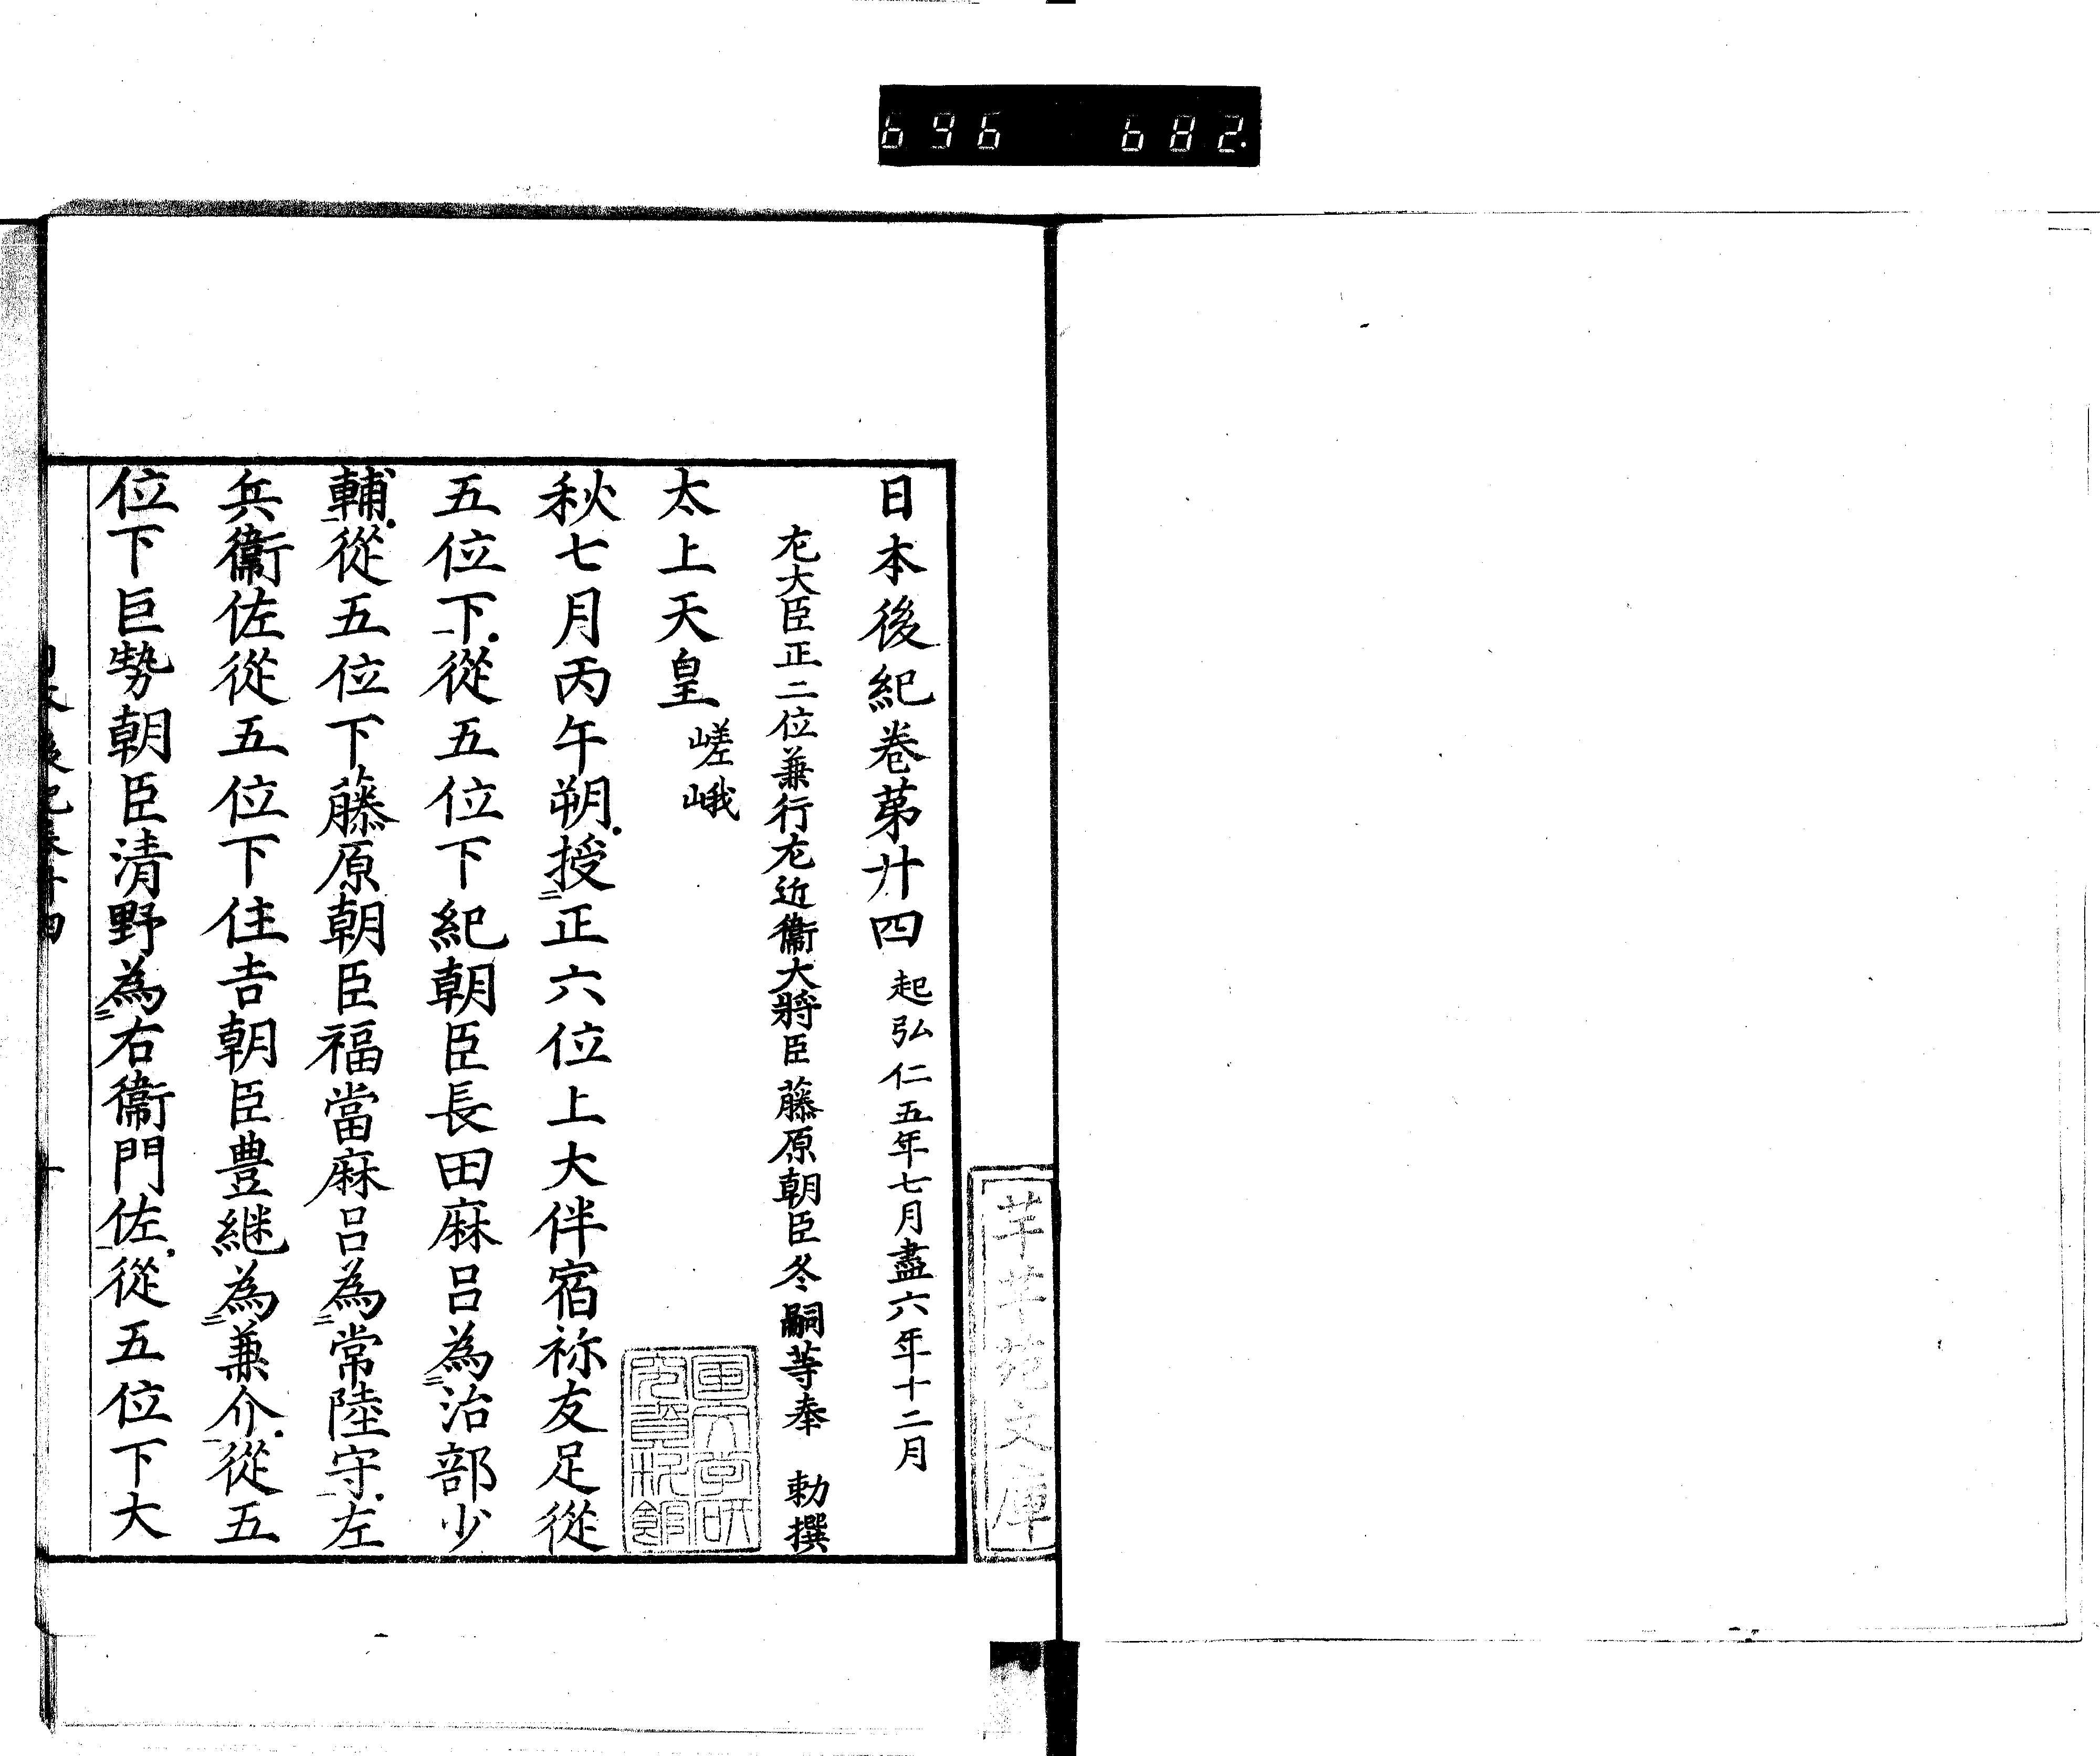 696 682.
日本後紀卷第廿四 起弘仁五年七月盡六年十二月
左大臣正二位兼行左近衞大將臣藤原朝臣冬嗣等奉 勅撰
太上天皇 嵯峨
秋七月丙午朔授正六位上大伴宿祢友足從
五位下從五位下紀朝臣長田麻呂為治部少
輔從五位下藤原朝臣福當麻呂為常陸守左
兵衞佐從五位下住吉朝臣豊継為兼介從五
位下巨勢朝臣清野為右衞門佐從五位下大
芊芊苑文庫